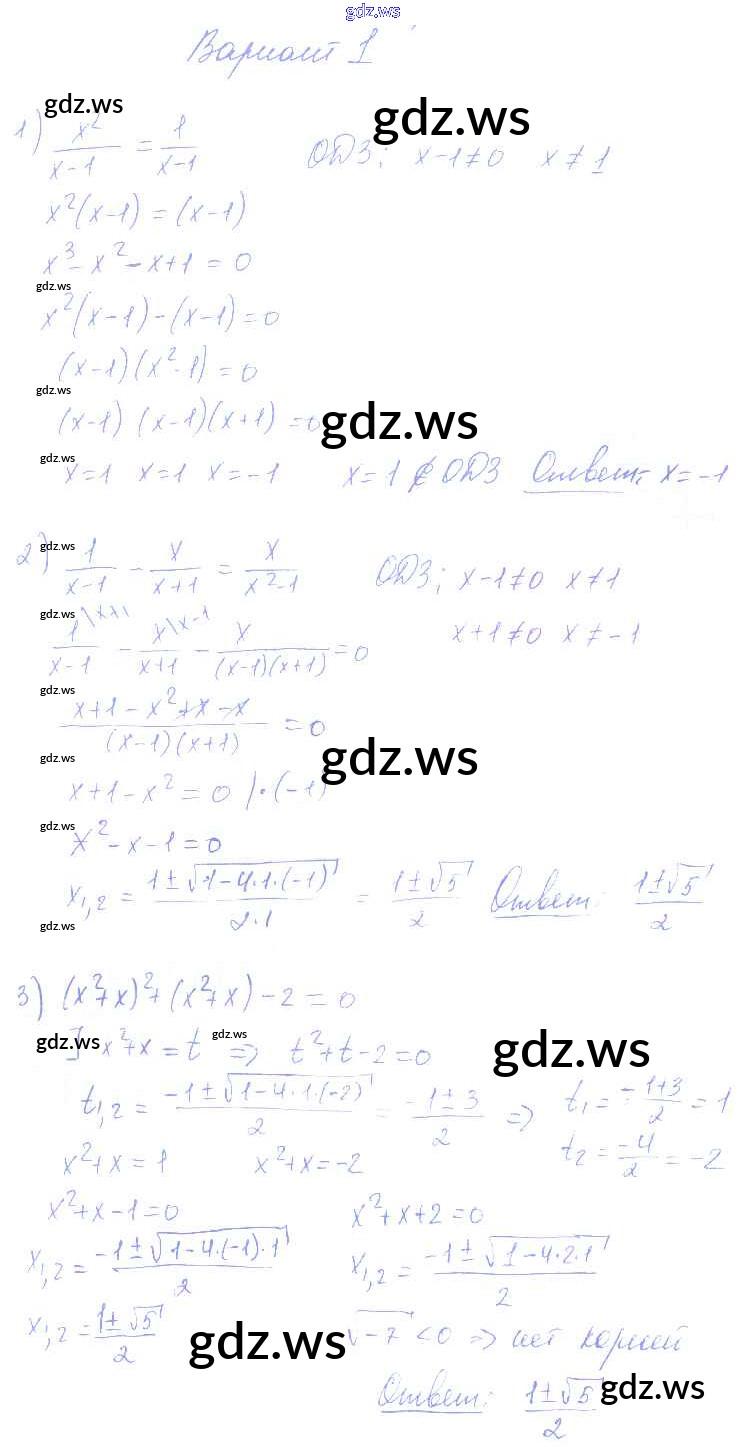 gdz.ws
Вариант 1
gdz.ws gdz.ws
1) x²/(x-1) = 1/(x-1) ОДЗ: x-1≠0 x≠1
x²(x-1) = (x-1)
x³-x²-x+1 = 0
gdz.ws
x²(x-1)-(x-1)=0
(x-1)(x²-1)=0
gdz.ws
(x-1)(x-1)(x+1)=0 gdz.ws
gdz.ws
x=1 x=1 x=-1 x=1 ∉ ОДЗ Ответ: x=-1
gdz.ws
2) 1/(x-1) - x/(x+1) = x/(x²-1) ОДЗ: x-1≠0 x≠1
gdz.ws
1\x+1/(x-1) - x\x-1/(x+1) - x/((x-1)(x+1)) = 0 x+1≠0 x≠-1
gdz.ws
(x+1-x²+x-x)/((x-1)(x+1)) = 0
gdz.ws gdz.ws
x+1-x² = 0 |·(-1)
gdz.ws
x²-x-1=0
x₁,₂ = (1±√(1-4·1·(-1)))/(2·1) = (1±√5)/2 Ответ: (1±√5)/2
gdz.ws
3) (x²+x)²+(x²+x)-2=0
gdz.ws gdz.ws gdz.ws
] x²+x=t => t²+t-2=0
t₁,₂ = (-1±√(1-4·1·(-2)))/2 = (-1±3)/2 => t₁ = (-1+3)/2 = 1
t₂ = -4/2 = -2
x²+x=1 x²+x=-2
x²+x-1=0 x²+x+2=0
x₁,₂ = (-1±√(1-4·(-1)·1))/2 x₁,₂ = (-1±√(1-4·2·1))/2
x₁,₂ = (1±√5)/2 √-7<0 => нет корней
gdz.ws
Ответ: (1±√5)/2 gdz.ws